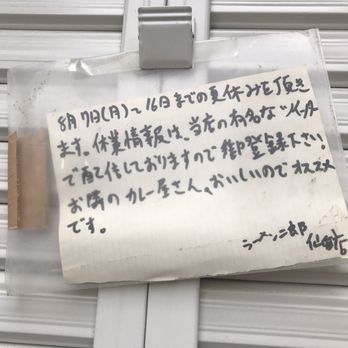 8月7日(月)〜16日までの夏休みを頂き
ます。休業情報は、当店の有名なツイッター
で配信しておりますので御登録下さい。
お隣のカレー屋さん、おいしいのでオススメ
です。
ラーメン二郎 仙台店